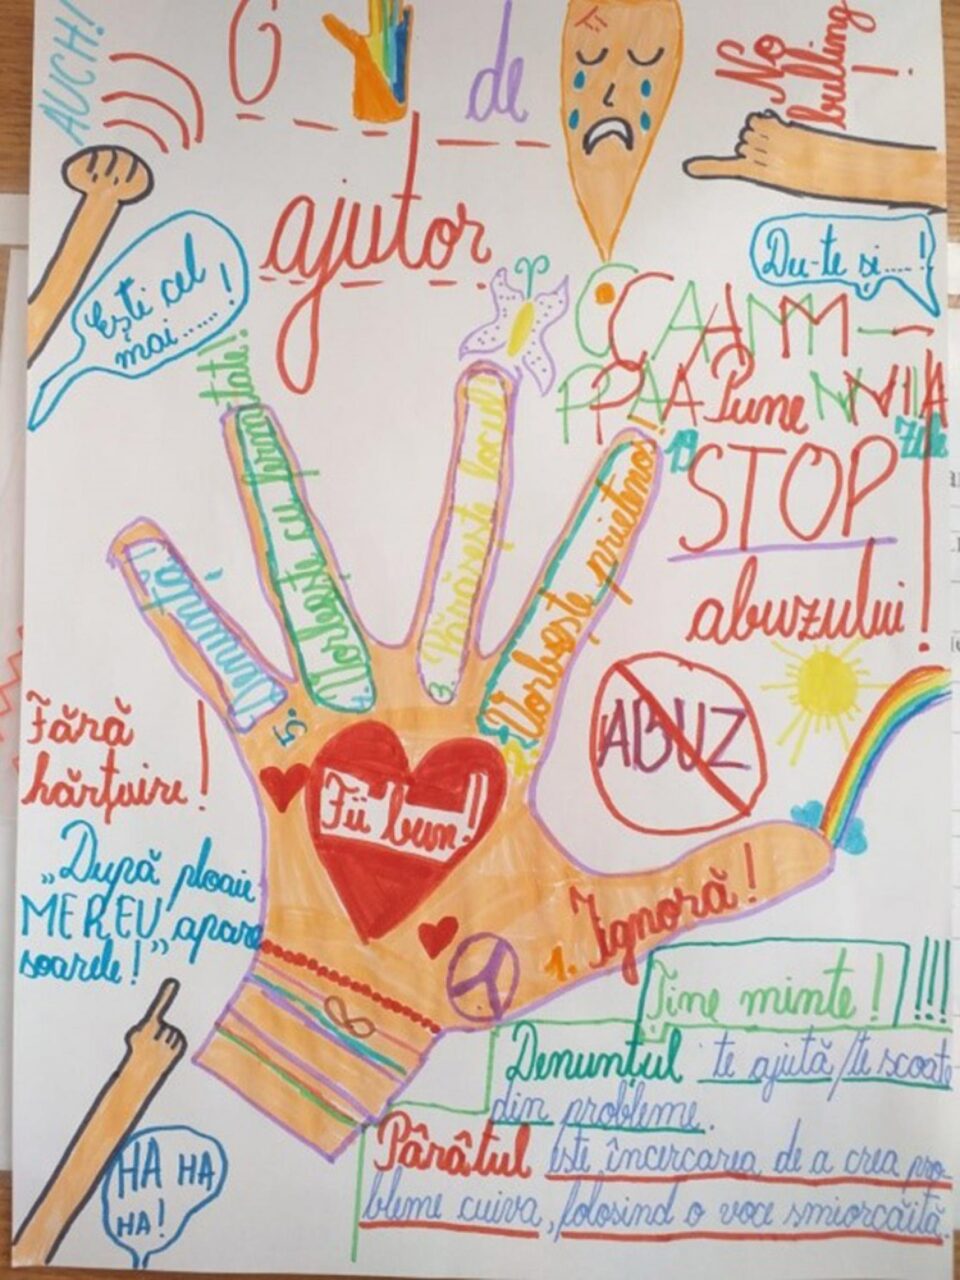 AUCH!
O
de
ajutor
No
bulling!
Ești cel
mai......!
Du-te și.....!
CCAAMM-
PPAANNIIA
Pune
STOP
abuzului!
ABUZ
5. Denunță!
4. Vorbește cu fermitate!
3. Părăsește locul!
2. Vorbește prietenos!
1. Ignoră!
Fii bun!
Fără
hărțuire!
„După ploaie
MEREU apare
soarele!”
Ține minte! !!!
Denunțul te ajută/te scoate
din probleme.
Pârâtul este încercarea de a crea pro-
bleme cuiva, folosind o voce smiorcăită.
HA HA
HA!